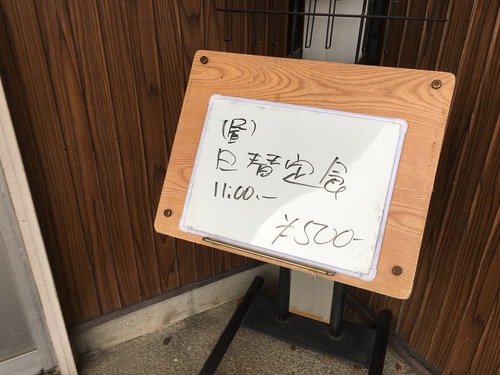 (昼)
日替定食
11:00.-
¥500-